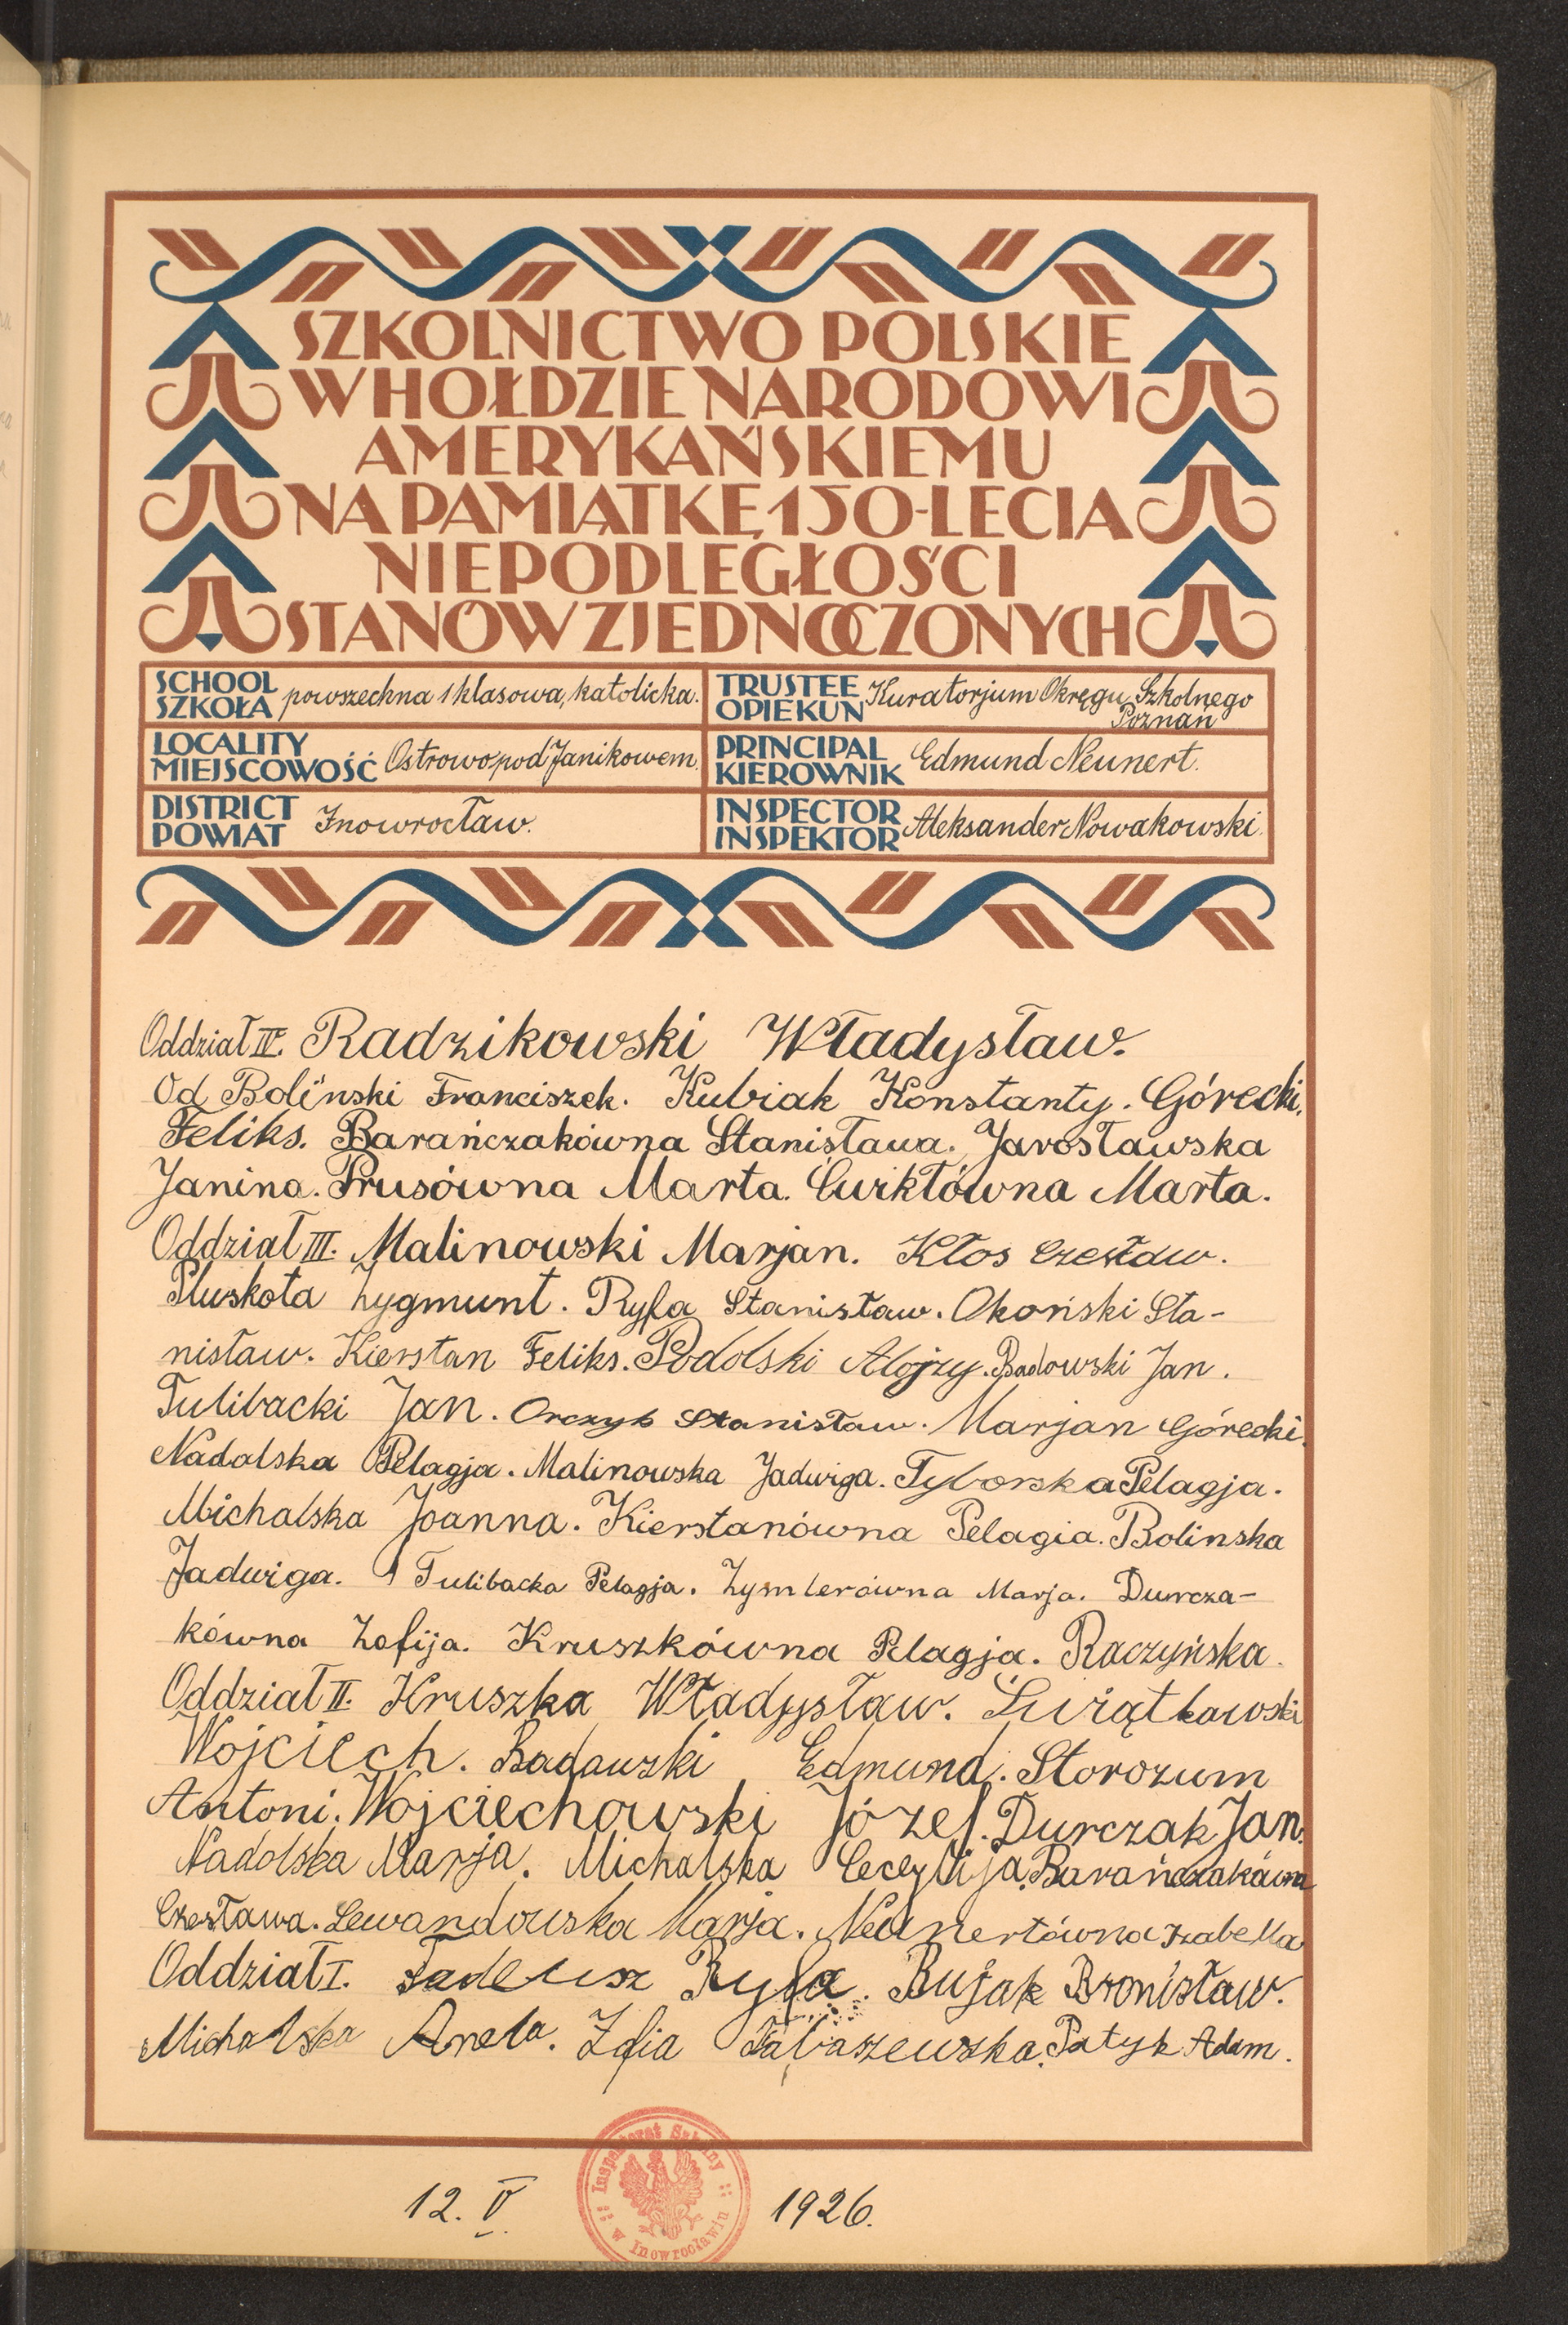 SZKOLNICTWO POLSKIE
W HOŁDZIE NARODOWI
AMERYKAŃSKIEMU
NA PAMIĄTKĘ 150-LECIA
NIEPODLEGŁOŚCI
STANÓW ZJEDNOCZONYCH
SCHOOL
SZKOŁA powszechna 1 klasowa, katolicka.
TRUSTEE
OPIEKUN Kuratorjum Okręgu Szkolnego
Poznań
LOCALITY
MIEJSCOWOŚĆ Ostrowo pod Janikowem.
PRINCIPAL
KIEROWNIK Edmund Neunert.
DISTRICT
POWIAT Inowrocław.
INSPECTOR
INSPEKTOR Aleksander Nowakowski.
Oddział IV. Radzikowski Władysław.
Od Boliński Franciszek. Kubiak Konstanty. Górecki,
Feliks. Barańczakówna Stanisława. Jarosławska
Janina. Prusówna Marta. Ćwikłówna Marta.
Oddział III. Malinowski Marjan. Kłos Czesław.
Pluskota Zygmunt. Ryfa Stanisław. Okoński Sta-
nisław. Kierstan Feliks. Podolski Alojzy. Badowski Jan.
Tulibacki Jan. Orczyk Stanisław. Marjan Górecki.
Nadolska Pelagja. Malinowska Jadwiga. Tyborska Pelagja.
Michalska Joanna. Kierstanówna Pelagia. Bolinska
Jadwiga. Tulibacka Pelagja. Zymlerówna Marja. Durcza-
kówna Zofija. Kruszkówna Pelagja. Raczyńska.
Oddział II. Kruszka Władysław. Świątkowski
Wojciech. Badowski Edmund. Storozum
Antoni. Wojciechowski Józef. Durczak Jan.
Nadolska Marja. Michalska Cecylija. Barańczakówna
Czesława. Lewandowska Marja. Neunertówna Izabella
Oddział I. Tadeusz Ryfa. Bujak Bronisław.
Michalska Anela. Zofia Tabaszewska. Patyk Adam.
Inspektorat Szkolny
w Inowrocławiu
12. V. 1926.